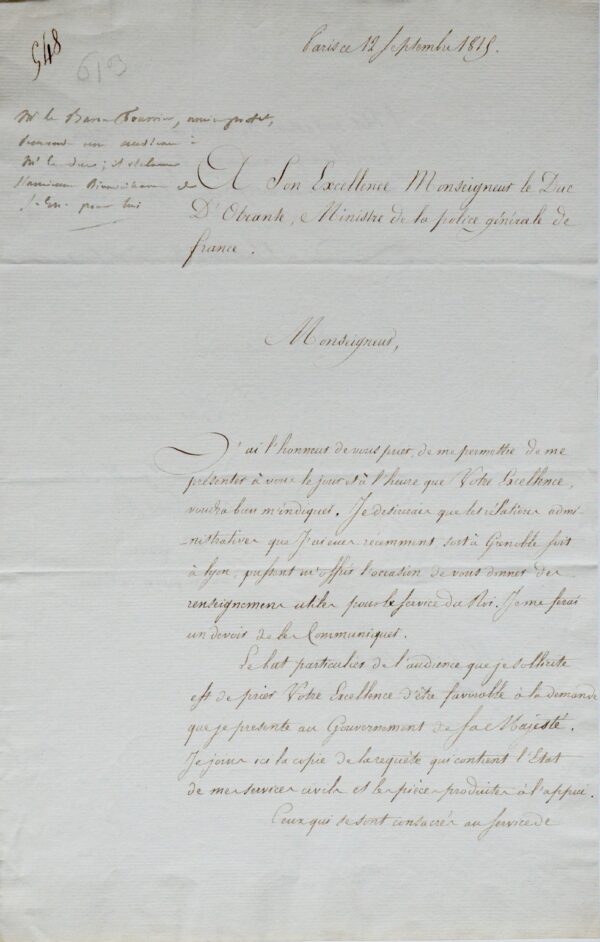 548
613
Paris ce 12 Septembre 1815.
Mr le Baron Fourrier, ancien préfet,
demande une audience à
Mr le duc; il réclame
pour lui
A Son Excellence Monseigneur le Duc
D'Otrante, Ministre de la police générale de
france.
Monseigneur,
J'ai l'honneur de vous prier, de me permettre de me
présenter à vous le jour et à l'heure que Votre Excellence,
voudra bien m'indiquer. Je desirerais que les rélations admi-
-nistratives que j'ai eues récemment soit à Grenoble soit
à Lyon, pussent m'offrir l'occasion de vous donner des
renseignemens utiles pour le service du Roi. Je me ferai
un devoir de les Communiquer.
Le but particulier de l'audience que je sollicite
est de prier Votre Excellence d'être favorable à la demande
que je présente au Gouvernement de Sa Majesté.
Je joins ici la copie de la requête qui contient l'Etat
de mes services civils et les pièces produites à l'appui.
Ceux qui se sont consacrés au service de